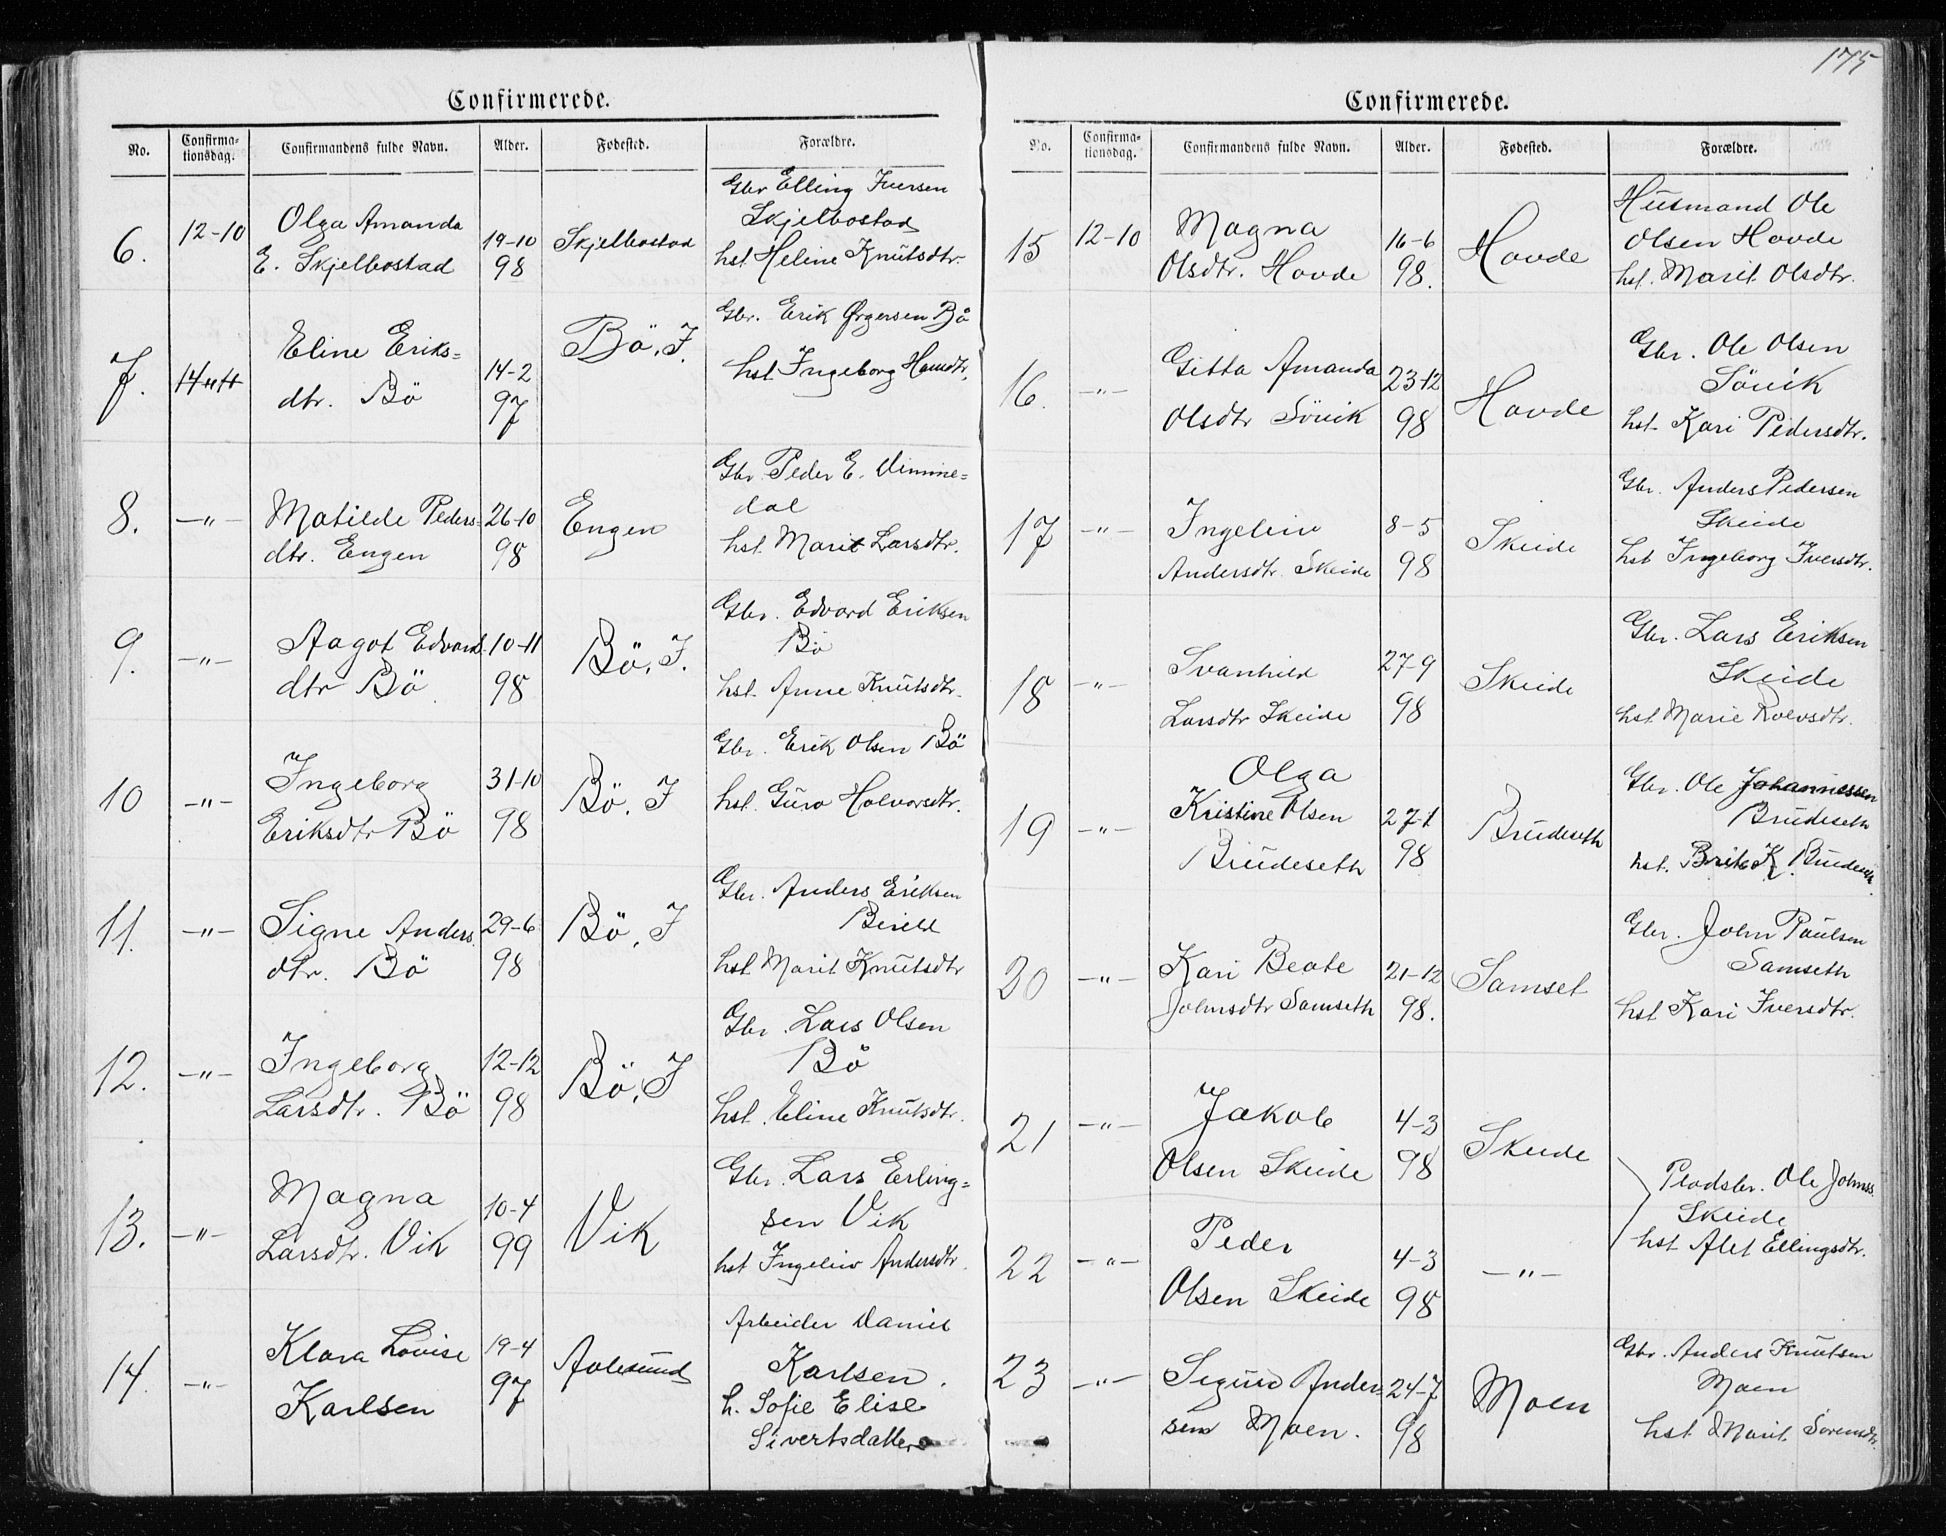 175
Confirmerede.
No.
Confirma-
tionsdag.
Confirmandens fulde Navn.
Alder.
Fødested.
Forældre.
6.
12-10
Olga Amanda
E. Skjelbostad
19-10
98
Skjelbostad
Gbr Elling Iversen
Skjelbostad
hst Heline Knutsdtr.
7.
Eline Eriks=
dtr. Bö
14-2
97
Bö, I.
Gbr. Erik Ørgersen Bö
hst Ingeborg
8.
—"—
Matilde Peders-
dtr. Engen
26-10
98
Engen
Gbr. Peder E. Vimme=
dal
hst. Marit Larsdtr.
9.
—"—
Aagot Edvards.
dtr Bö
10-11
98
Bö, I.
Gbr. Edvard Eriksen
Bö
hst. Anne Knutsdtr.
10
—"—
Ingeborg
Eriksdtr Bö
31-10
98
Bö, I
Gbr. Erik Olsen Bö
hst. Guro Halvorsdtr.
11.
—"—
Signe Anders.
dtr. Bö
29-6
98
Bö, I
Gbr. Anders Eriksen
Bereld
hst. Marit Knutsdtr
12.
—"—
Ingeborg
Larsdtr. Bö
12-12
98
Bö, I
Gbr. Lars Olsen
Bö
hst. Eline Knutsdtr.
13.
—"—
Magna
Larsdtr. Vik
10-4
99
Vik
Gbr. Lars Erling=
sen Vik
hst Ingeliv Andersdtr.
14.
—"—
Klara Lovise
Karlsen
19-4
97
Aalesund
Arbeider Daniel
Karlsen.
h. Sofie Elise
Sivertsdatter
Confirmerede.
No.
Confirma-
tionsdag.
Confirmandens fulde Navn.
Alder.
Fødested.
Forældre.
15
12-10
Magna
Olsdtr. Hovde
16-6
98.
Hovde
Husmand Ole
Olsen Hovde
hst. Marit Olsdtr.
16.
—"—
Gitta Amanda
Olsdtr Sövik
23-12
98
Hovde
Gbr. Ole Olsen
Sövik
hst. Kari Pedersdtr.
17
—"—
Ingeliv
Andersdtr. Skeide
8-5
98
Skeide
Gbr. Anders Pedersen
Skeide
hst Ingeborg Iversdtr.
18
—"—
Svanhild
Larsdtr Skeide
27-9
98
Skeide
Gbr. Lars Eriksen
Skeide
hst. Marie Rolvsdtr.
19
—"—
Olga
Kristine Olsen
Brudeseth
27-1
98
Brudeseth
Gbr. Ole Johannessen
Brudeseth
hst. Brite K. Brudeseth.
20
—"—
Kari Beate
Johnsdtr Samseth
21-12
98.
Samset
Gbr. John Paulsen
Samseth
hst Kari Iversdtr.
21
—"—
Jakob
Olsen Skeide
4-3
98
Skeide
Pladsbr. Ole Johnss.
Skeide
hst Alet Ellingsdtr.
22
—"—
Peder
Olsen Skeide
4-3
98
—"—
23
—"—
Sigurd Ander-
sen Moen.
24-7
98
Moen
Gbr. Anders Knutsen
Moen
hst Marit Sörensdtr.